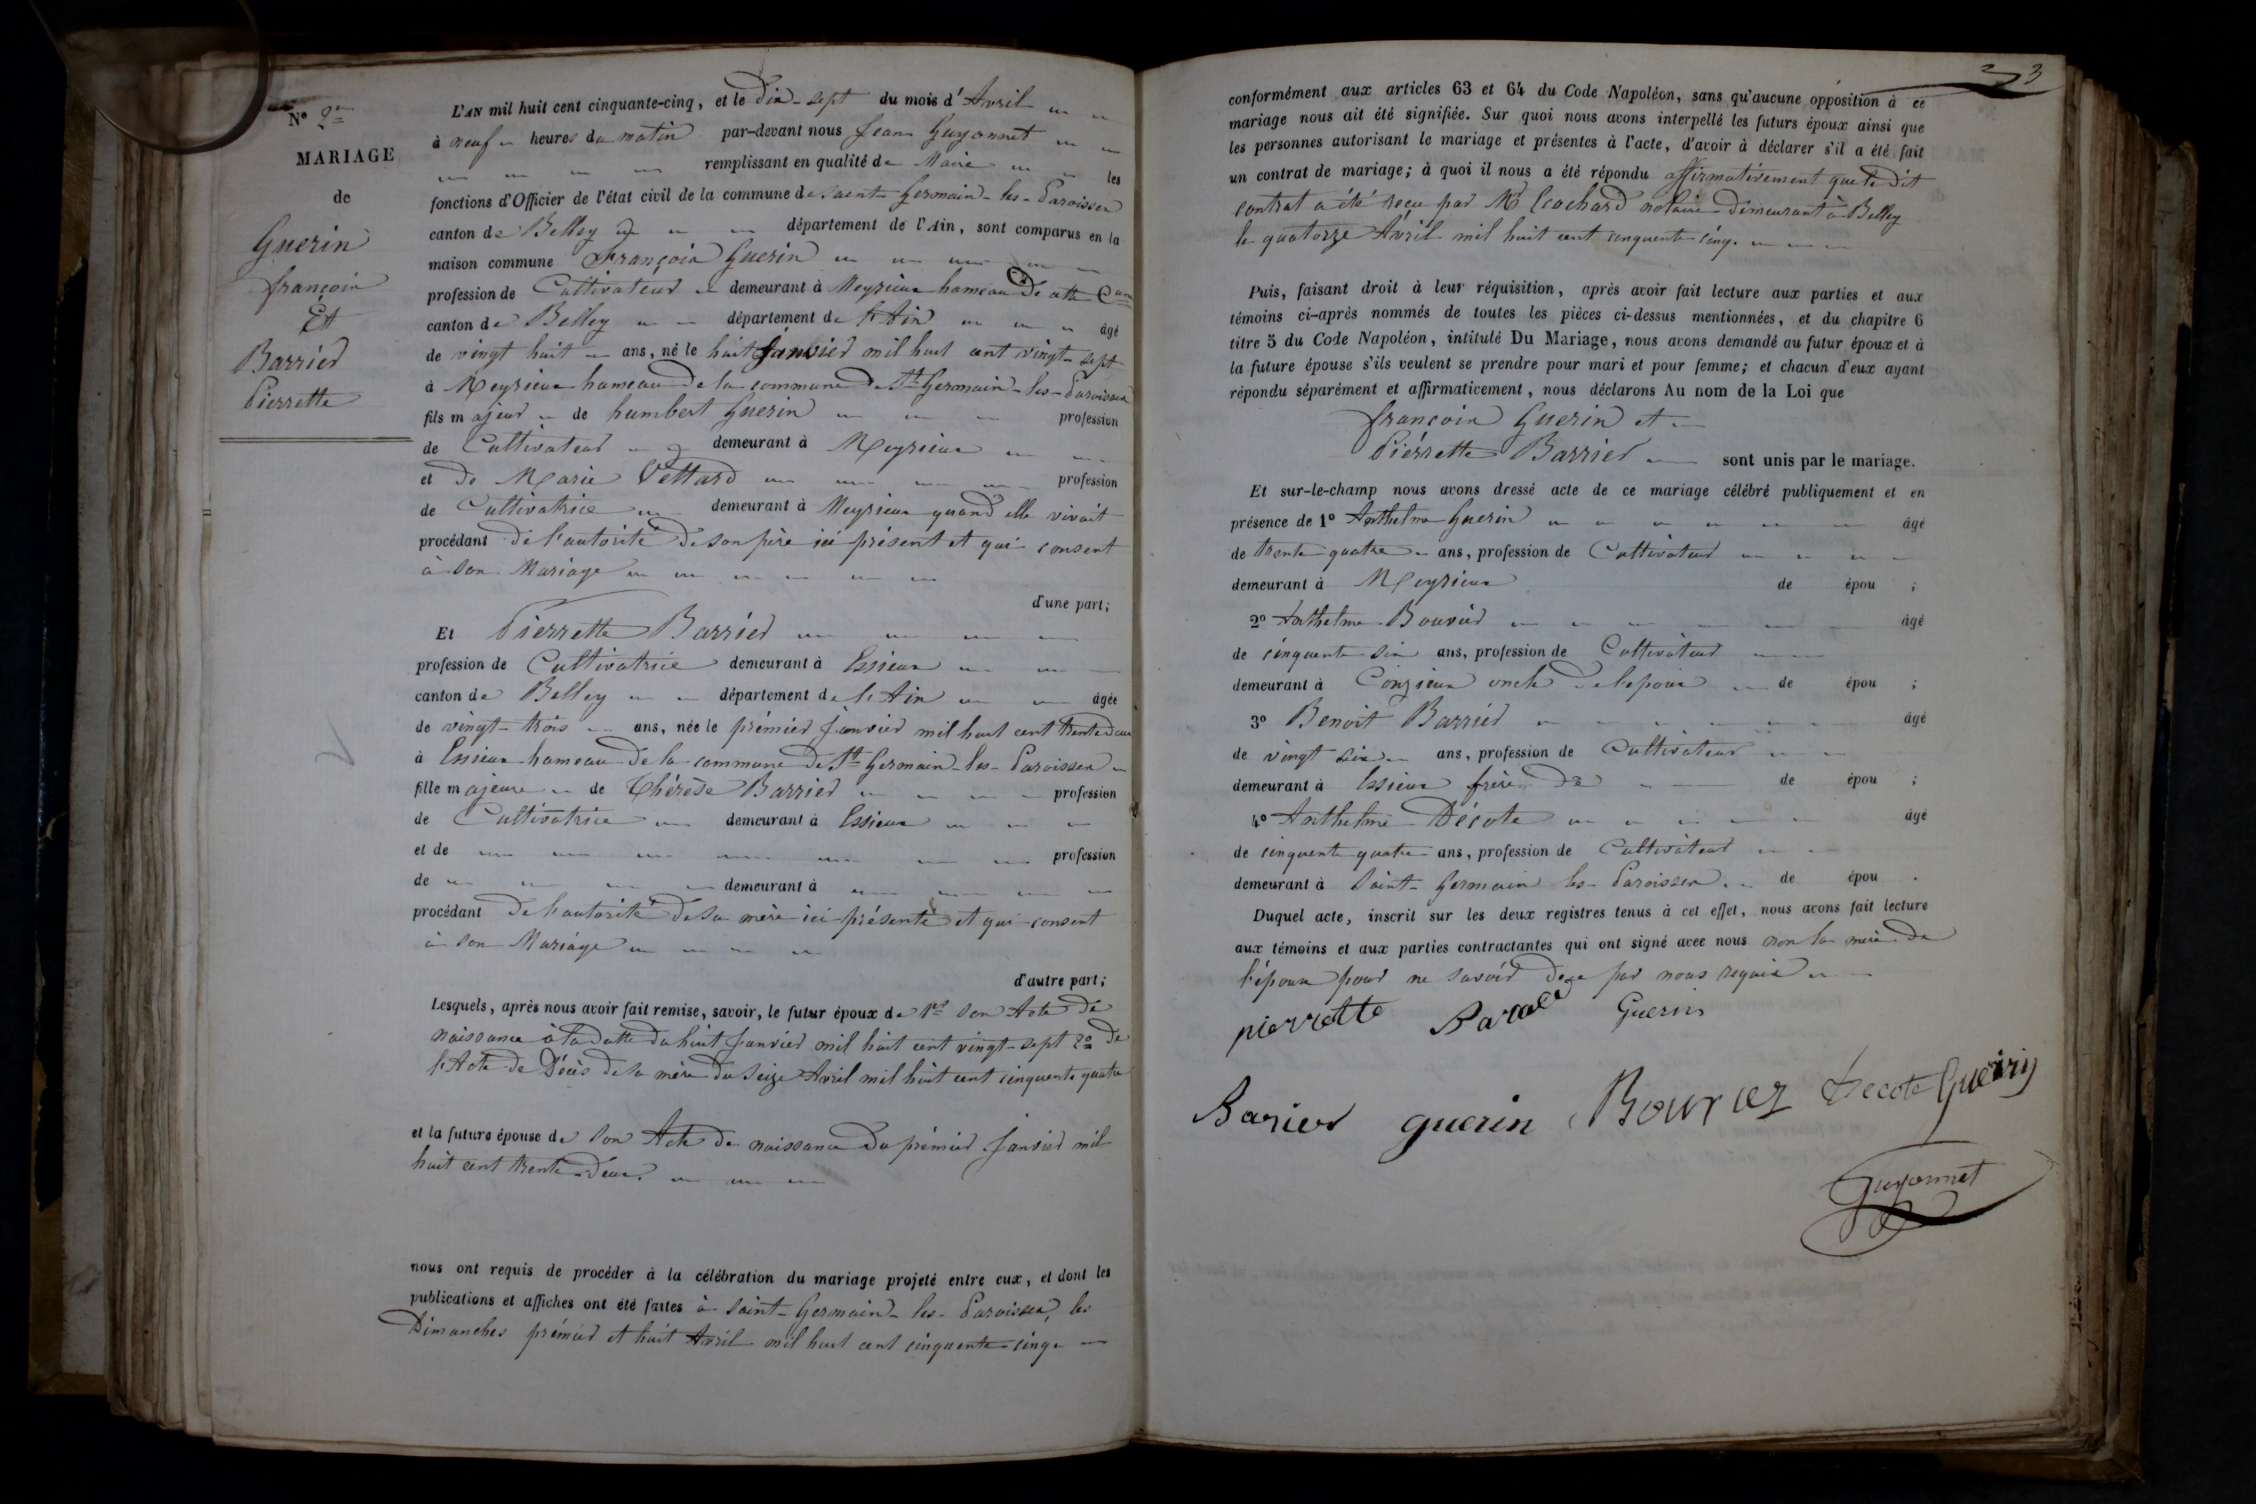 N° 2e
MARIAGE
de
Guerin
françois
Et
Barrier
Pierrette
L'AN mil huit cent cinquante-cinq, et le Dix-sept du mois d'Avril
à neuf heures du matin par-devant nous Jean Guyonnet
remplissant en qualité de Maire les
fonctions d'Officier de l'état civil de la commune de Saint-Germain-les-Paroisses
canton de Belley département de l'Ain, sont comparus en la
maison commune François Guerin
profession de Cultivateur demeurant à Meyrieux hameau de
canton de Belley département de l'Ain âgé
de vingt huit ans, né le huit Janvier mil huit cent vingt-sept
à Meyrieux hameau de la commune de St Germain-les-Paroisses
fils majeur de humbert Guerin profession
de Cultivateur demeurant à Meyrieux
et de Marie Vettard profession
de Cultivatrice demeurant à Meyrieux quand elle vivait
procédant de l'autorité de son père ici présent et qui consent
à son Mariage
d'une part;
Et Pierrette Barrier
profession de Cultivatrice demeurant à Essieux
canton de Belley département de l'Ain âgée
de vingt-trois ans, née le prémier Janvier mil huit cent trente deux
à Essieux hameau de la commune de St Germain-les-Paroisses
fille majeure de Thérèse Barrier profession
de Cultivatrice demeurant à Essieux
et de profession
de demeurant à
procédant de l'autorité de sa mère ici présente et qui consent
à son Mariage
d'autre part;
Lesquels, après nous avoir fait remise, savoir, le futur époux de 1er son Acte de
naissance à la datte du huit Janvier mil huit cent vingt-sept 2° de
l'Acte de Décès de sa mère du seize Avril mil huit cent cinquante quatre
et la future épouse de son Acte de naissance du prémier Janvier mil
huit cent trente-deux.
nous ont requis de procéder à la célébration du mariage projeté entre eux, et dont les
publications et affiches ont été faites à Saint-Germain-les-Paroisses, les
Dimanches prémier et huit Avril mil huit cent cinquante-cinq
3
conformément aux articles 63 et 64 du Code Napoléon, sans qu'aucune opposition à ce
mariage nous ait été signifiée. Sur quoi nous avons interpellé les futurs époux ainsi que
les personnes autorisant le mariage et présentes à l'acte, d'avoir à déclarer s'il a été fait
un contrat de mariage; à quoi il nous a été répondu affirmativement que le dit
contrat a été reçu par Me Cochard notaire demeurant à Belley
le quatorze Avril mil huit cent cinquante-cinq.
Puis, faisant droit à leur réquisition, après avoir fait lecture aux parties et aux
témoins ci-après nommés de toutes les pièces ci-dessus mentionnées, et du chapitre 6
titre 5 du Code Napoléon, intitulé Du Mariage, nous avons demandé au futur époux et à
la future épouse s'ils veulent se prendre pour mari et pour femme; et chacun d'eux ayant
répondu séparément et affirmaticement, nous déclarons Au nom de la Loi que
françois Guerin et
Piérrette Barrier sont unis par le mariage.
Et sur-le-champ nous avons dressé acte de ce mariage célébré publiquement et en
présence de 1° Anthelme Guerin âgé
de trente quatre ans, profession de Cultivateur
demeurant à Meyrieux de épou ;
2° Anthelme Bouvier âgé
de cinquante six ans, profession de Cultivateur
demeurant à Conzieux oncle de l'epoux de épou ;
3° Benoit Barrier âgé
de vingt six ans, profession de Cultivateur
demeurant à Essieux frère de de épou ;
4° Anthelme Décote âgé
de cinquante quatre ans, profession de Cultivateur
demeurant à Saint-Germain les-Paroisses. de épou .
Duquel acte, inscrit sur les deux registres tenus à cet effet, nous avons fait lecture
aux témoins et aux parties contractantes qui ont signé avec nous non la mère de
l'épouse pour ne savoir de ce par nous requise
pierrette Barier Guerin
Barier guerin Bouvier Decote Guerin
Guyonnet